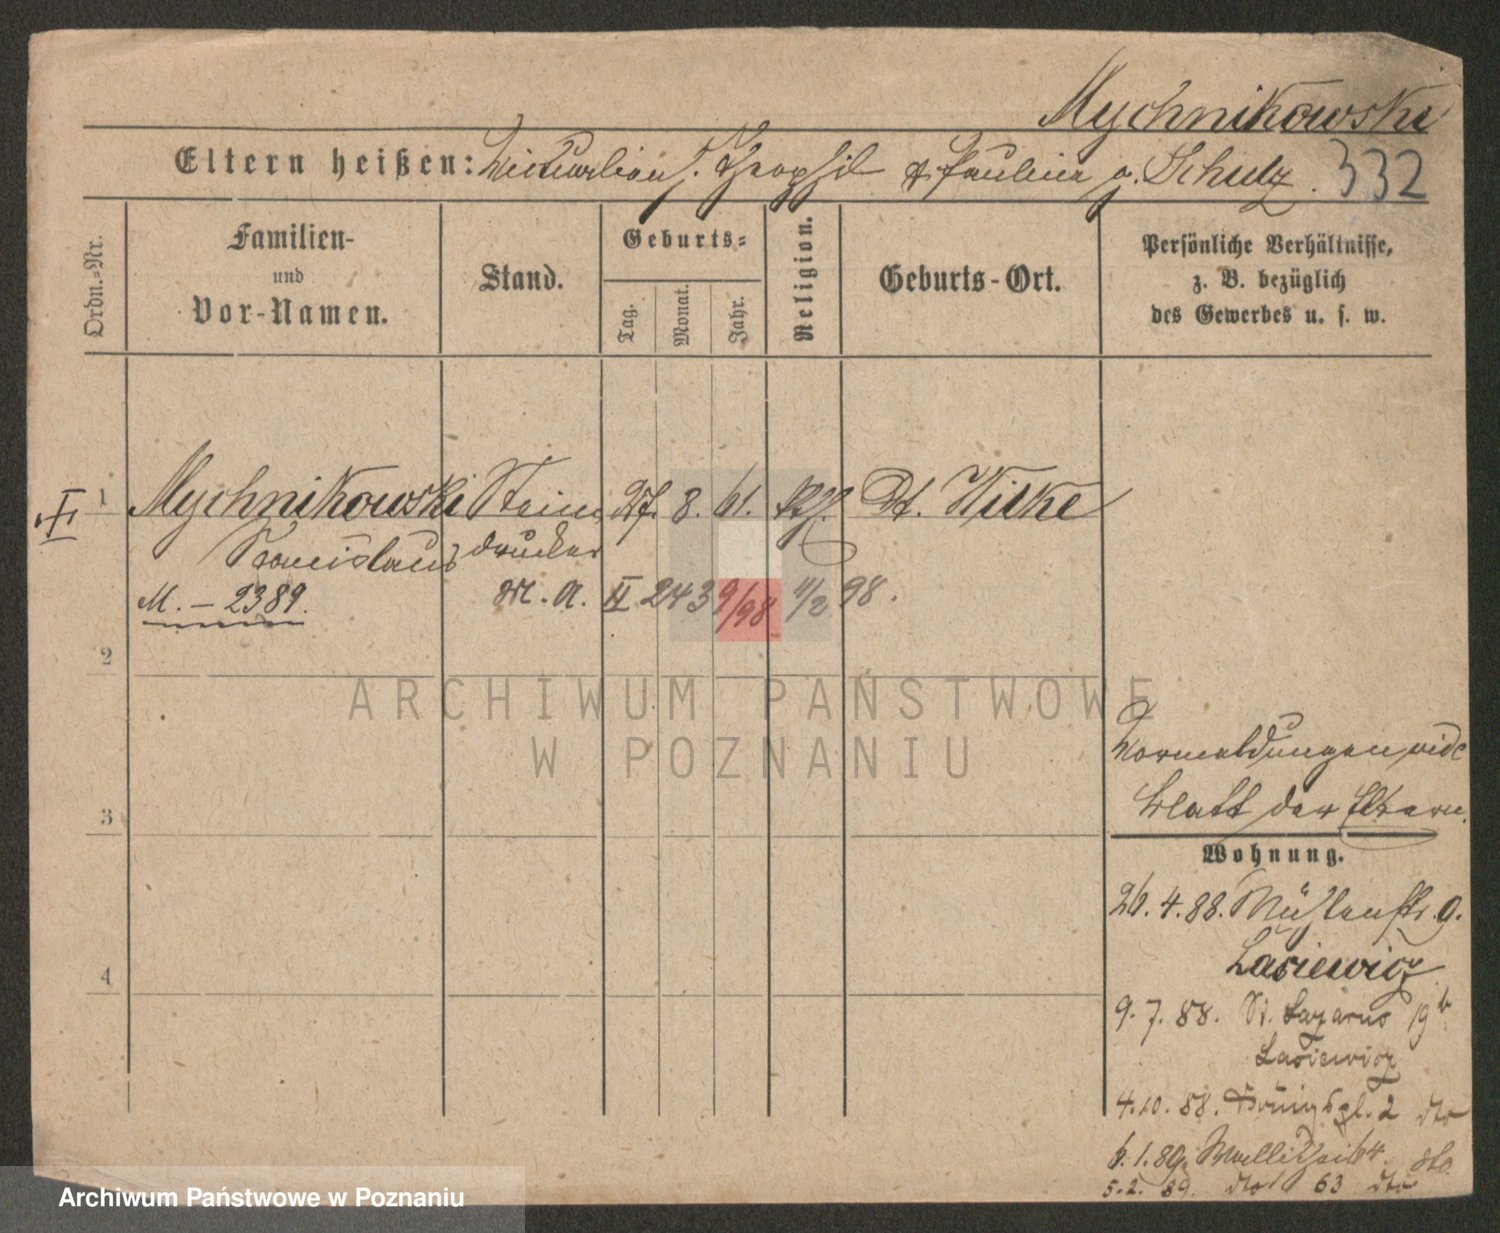 Mychnikowski
Eltern heißen: Theophil & Pauline g. Schulz. 332
Ordn.-Nr.
Familien-
und
Vor-Namen.
Stand.
Geburts-
Tag.
Monat.
Jahr.
Religion.
Geburts-Ort.
Persönliche Verhältnisse,
z. B. bezüglich
des Gewerbes u. s. w.
I 1 Mychnikowski Stein 8. 61. Dt. Wilke
Stanislaus drucker
M. - 2389. M. A. II 243 9/98 11/2 98.
2
ARCHIWUM PAŃSTWOWE
W POZNANIU
Vormeldungen vide
Blatt der Eltern.
3
Wohnung.
26. 4. 88. Mühlenstr. 9.
Lasiewicz
4
9. 7. 88. St. Lazarus 19b
Lasiewicz
4. 10. 88. Königspl. 2 dto
6. 1. 89. Wallischei 64. dto.
5. 2. 89. dto 63 dto
Archiwum Państwowe w Poznaniu